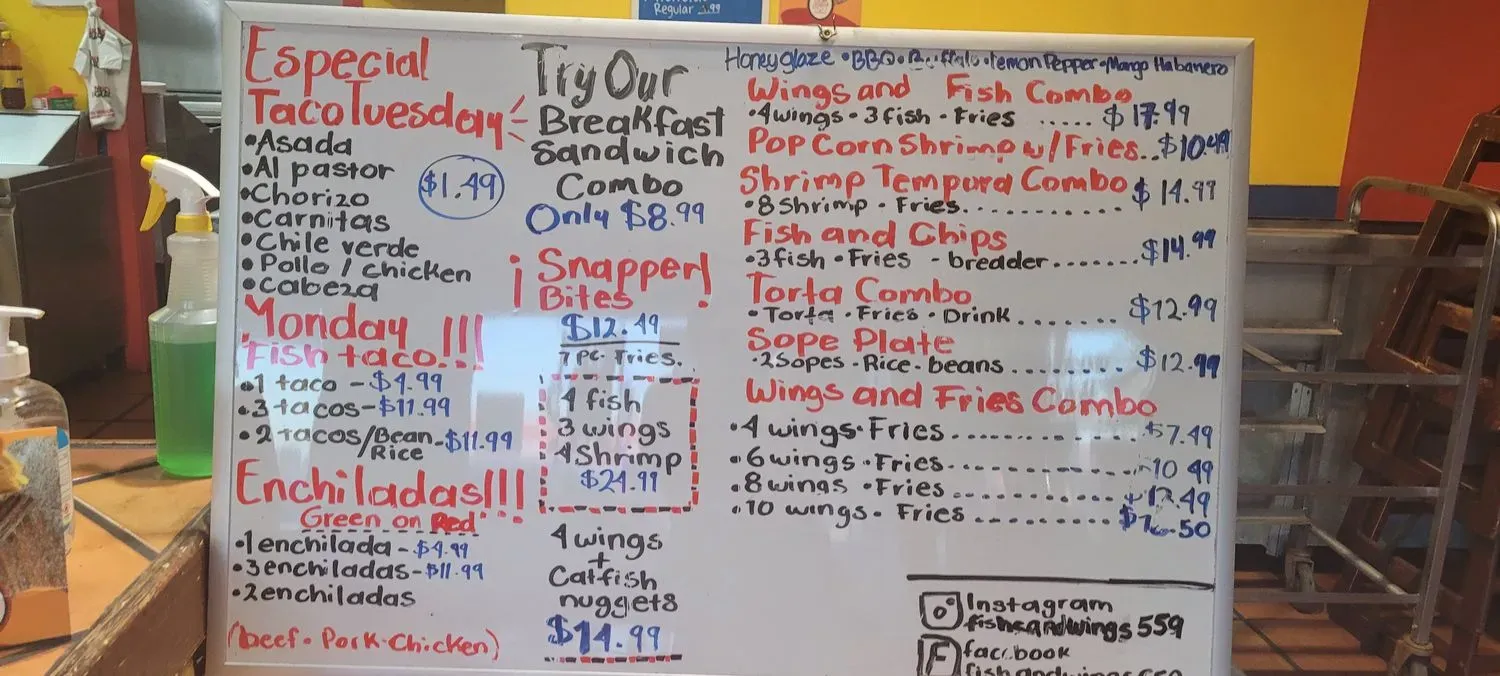 Regular 3.99
Especial
Taco Tuesday
•Asada
•Al pastor
•Chorizo
•Carnitas
•Chile verde
•Pollo / chicken
•cabeza
$1.49
Monday !!!
Fish taco!!
•1 taco - $4.99
•3 tacos - $11.99
•2 tacos/Bean - $11.99
Rice
Enchiladas!!!
Green on Red
•1 enchilada - $4.99
•3 enchiladas - $11.99
•2 enchiladas
(beef • Pork • Chicken)
Try Our
Breakfast
Sandwich
Combo
Only $8.99
¡Snapper!
Bites
$12.49
7 PC. Fries.
4 fish
3 wings
4 Shrimp
4 wings
+
Catfish
nuggets
$14.99
Honey glaze •BBQ •Buffalo •lemon Pepper •Mango Habanero
Wings and Fish Combo
•4 wings • 3 fish • Fries ..... $17.99
Pop Corn Shrimp w/ Fries..$10.49
Shrimp Tempura Combo $14.99
•8 Shrimp • Fries............
Fish and Chips
•3 fish • Fries - breader.......$14.99
Torta Combo
•Torta • Fries • Drink.......$12.99
Sope Plate
•2 Sopes • Rice • beans........$12.99
Wings and Fries Combo
•4 wings • Fries............$7.49
•6 wings • Fries............10 49
•8 wings • Fries............
•10 wings • Fries............$16.50
Instagram
fishandwings559
facebook